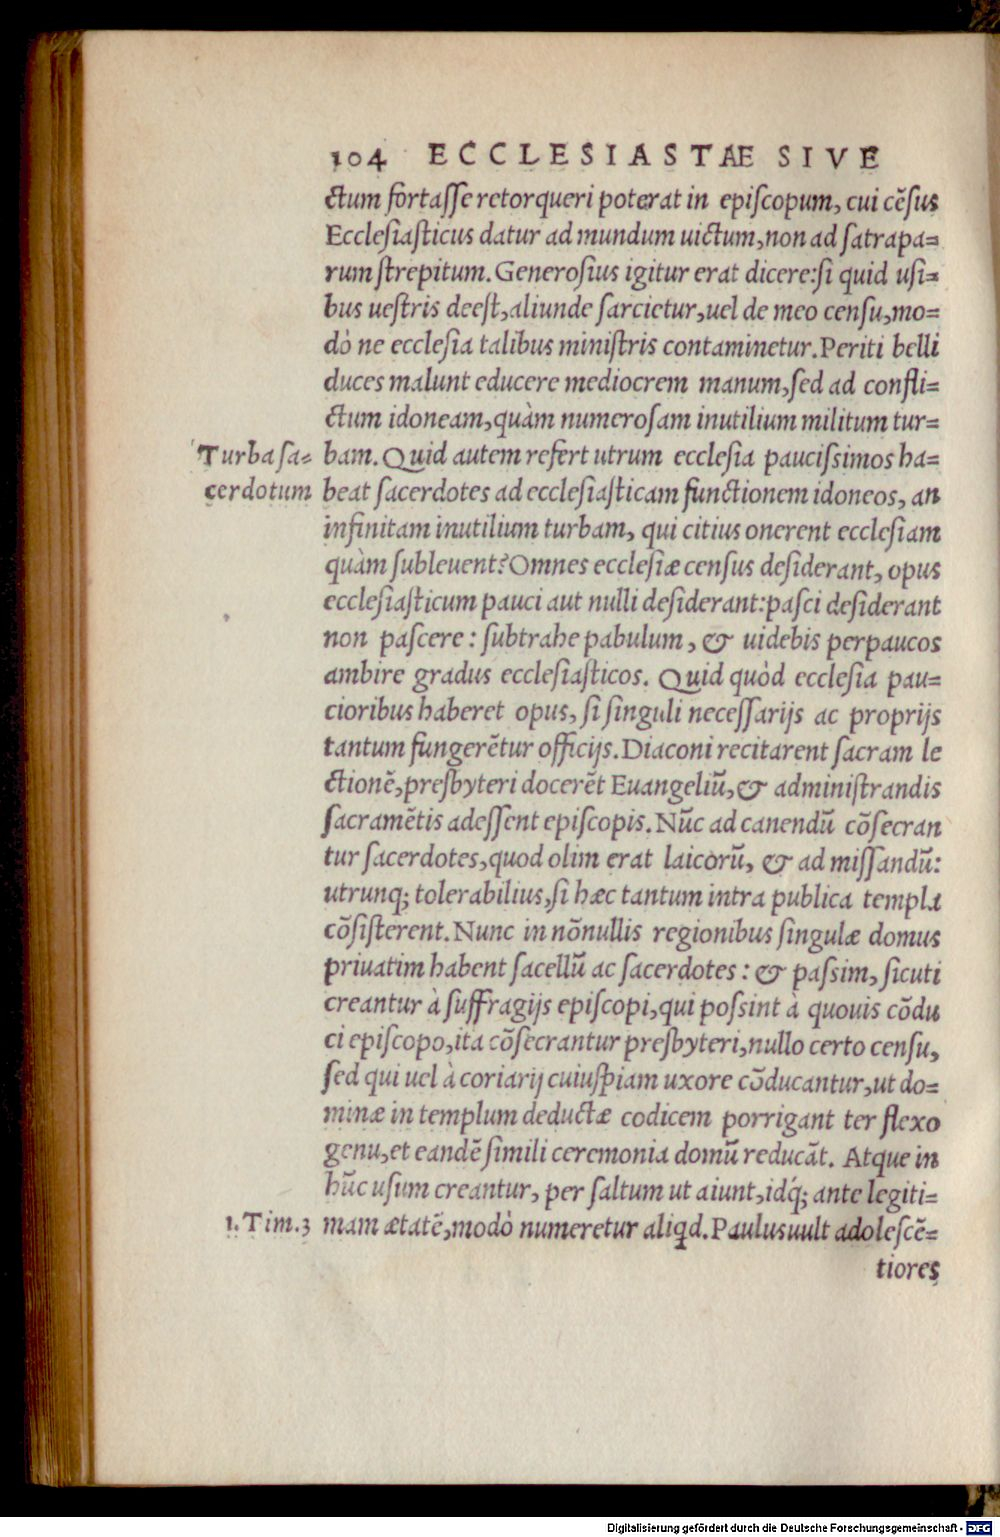 104 ECCLESIASTAE SIVE
ctum fortasse retorqueri poterat in episcopum, cui cẽsus
Ecclesiasticus datur ad mundum uictum, non ad satrapa=
rum strepitum. Generosius igitur erat dicere: si quid usi=
bus uestris deest, aliunde sarcietur, uel de meo censu, mo=
dò ne ecclesia talibus ministris contaminetur. Periti belli
duces malunt educere mediocrem manum, sed ad confli=
ctum idoneam, quàm numerosam inutilium militum tur=
Turba sa= bam. Quid autem refert utrum ecclesia paucissimos ha=
cerdotum beat sacerdotes ad ecclesiasticam functionem idoneos, an
infinitam inutilium turbam, qui citius onerent ecclesiam
quàm subleuent? Omnes ecclesiæ census desiderant, opus
ecclesiasticum pauci aut nulli desiderant: pasci desiderant
non pascere: subtrahe pabulum, & uidebis perpaucos
ambire gradus ecclesiasticos. Quid quòd ecclesia pau=
cioribus haberet opus, si singuli necessarijs ac proprijs
tantum fungerẽtur officijs. Diaconi recitarent sacram le
ctionẽ, presbyteri docerẽt Euangeliũ, & administrandis
sacramẽtis adessent episcopis. Nũc ad canendũ cõsecran
tur sacerdotes, quod olim erat laicorũ, & ad missandũ:
utrunq; tolerabilius, si hæc tantum intra publica templa
cõsisterent. Nunc in nõnullis regionibus singulæ domus
priuatim habent sacellũ ac sacerdotes: & passim, sicuti
creantur à suffragijs episcopi, qui possint à quouis cõdu
ci episcopo, ita cõsecrantur presbyteri, nullo certo censu,
sed qui uel à coriarij cuiuspiam uxore cõducantur, ut do=
minæ in templum deductæ codicem porrigant ter flexo
genu, et eandẽ simili ceremonia domũ reducãt. Atque in
hũc usum creantur, per saltum ut aiunt, idq́; ante legiti=
1. Tim. 3 mam ætatẽ, modò numeretur aliqd. Paulus uult adolescẽ=
tiores
Digitalisierung gefördert durch die Deutsche Forschungsgemeinschaft - DFG